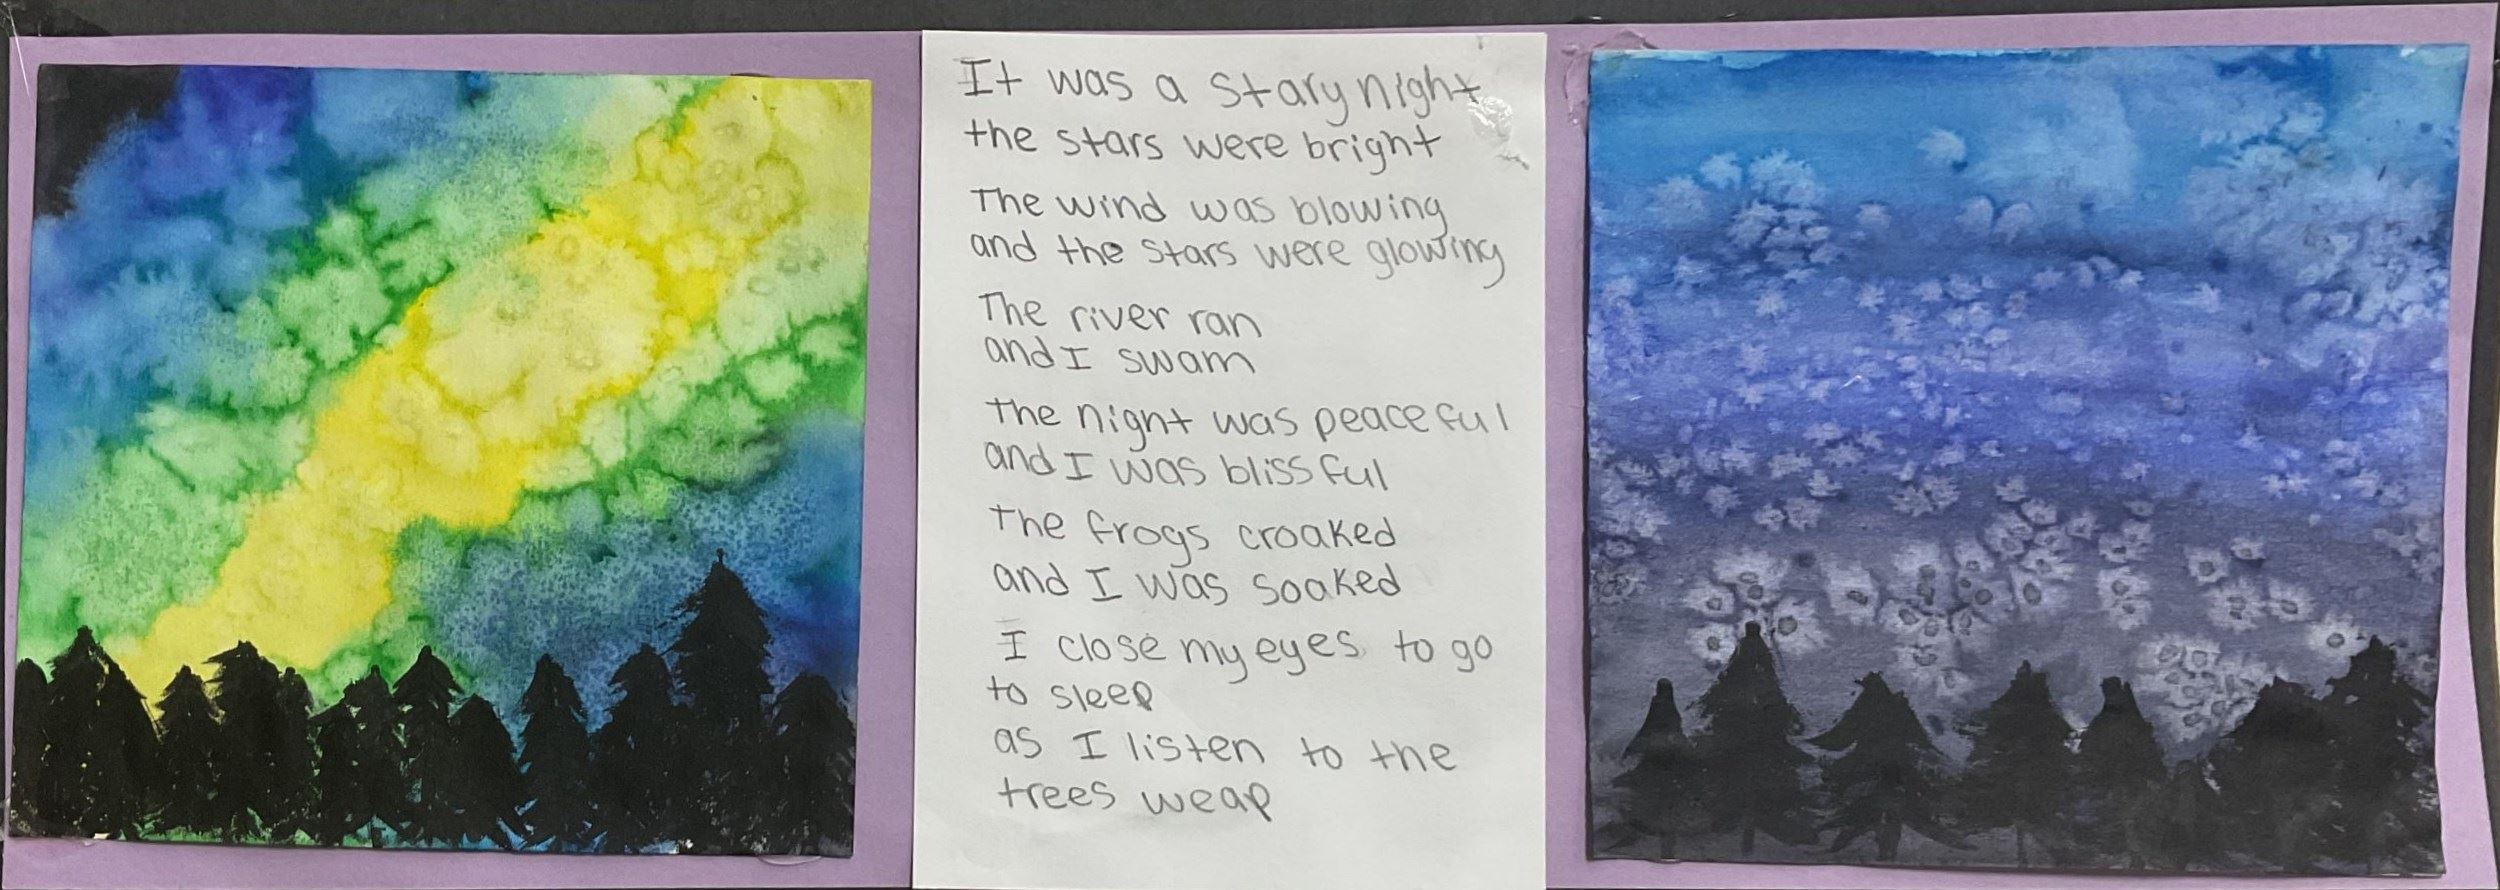 It was a stary night
the stars were bright
The wind was blowing
and the stars were glowing
The river ran
and I swam
The night was peaceful
and I was blissful
The frogs croaked
and I was soaked
I close my eyes to go
to sleep
as I listen to the
trees weap